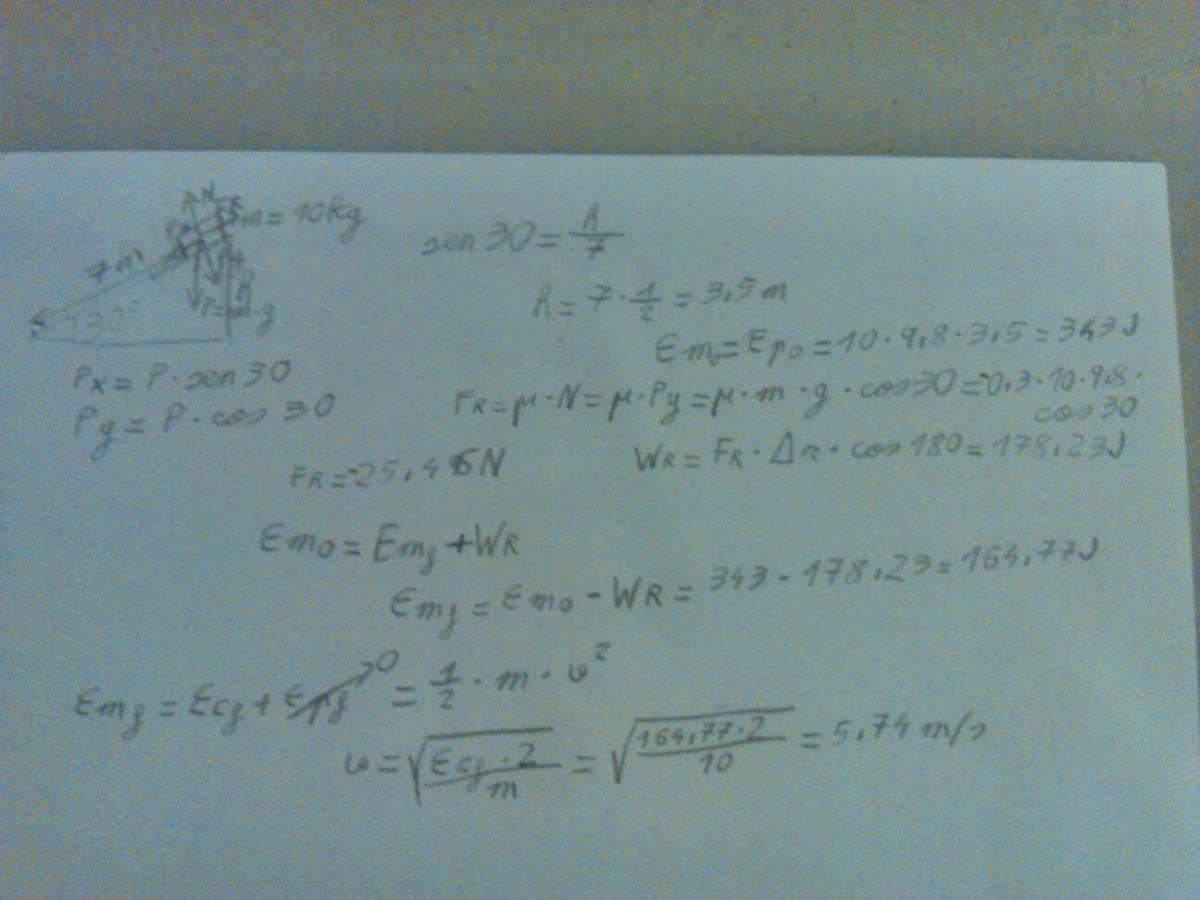 N
m = 10kg
7m
30°
P=m·g
h
sen 30 = h/7
h = 7 · 1/2 = 3,5 m
Em₀ = Ep₀ = 10 · 9,8 · 3,5 = 343 J
Px = P · sen 30
Py = P · cos 30
FR = μ · N = μ · Py = μ · m · g · cos 30 = -0,3 · 10 · 9,8 ·
cos 30
FR = -25,46 N
WR = FR · Δr · cos 180 = 178,23 J
Em₀ = Emf + WR
Emf = Em₀ - WR = 343 - 178,23 = 164,77 J
Emf = Ecf + Epf → 0 = 1/2 · m · v²
v = √(Ecf · 2 / m) = √(164,77 · 2 / 10) = 5,74 m/s